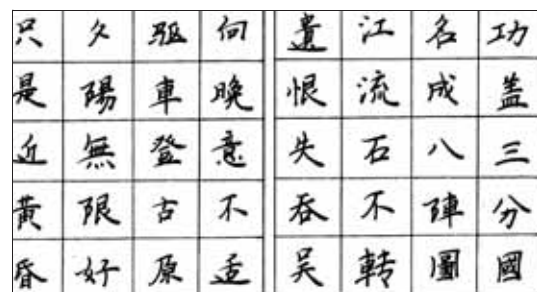 功盖三分國
名成八陣圖
江流石不轉
遺恨失吞吴
向晚意不适
驅車登古原
夕陽無限好
只是近黄昏